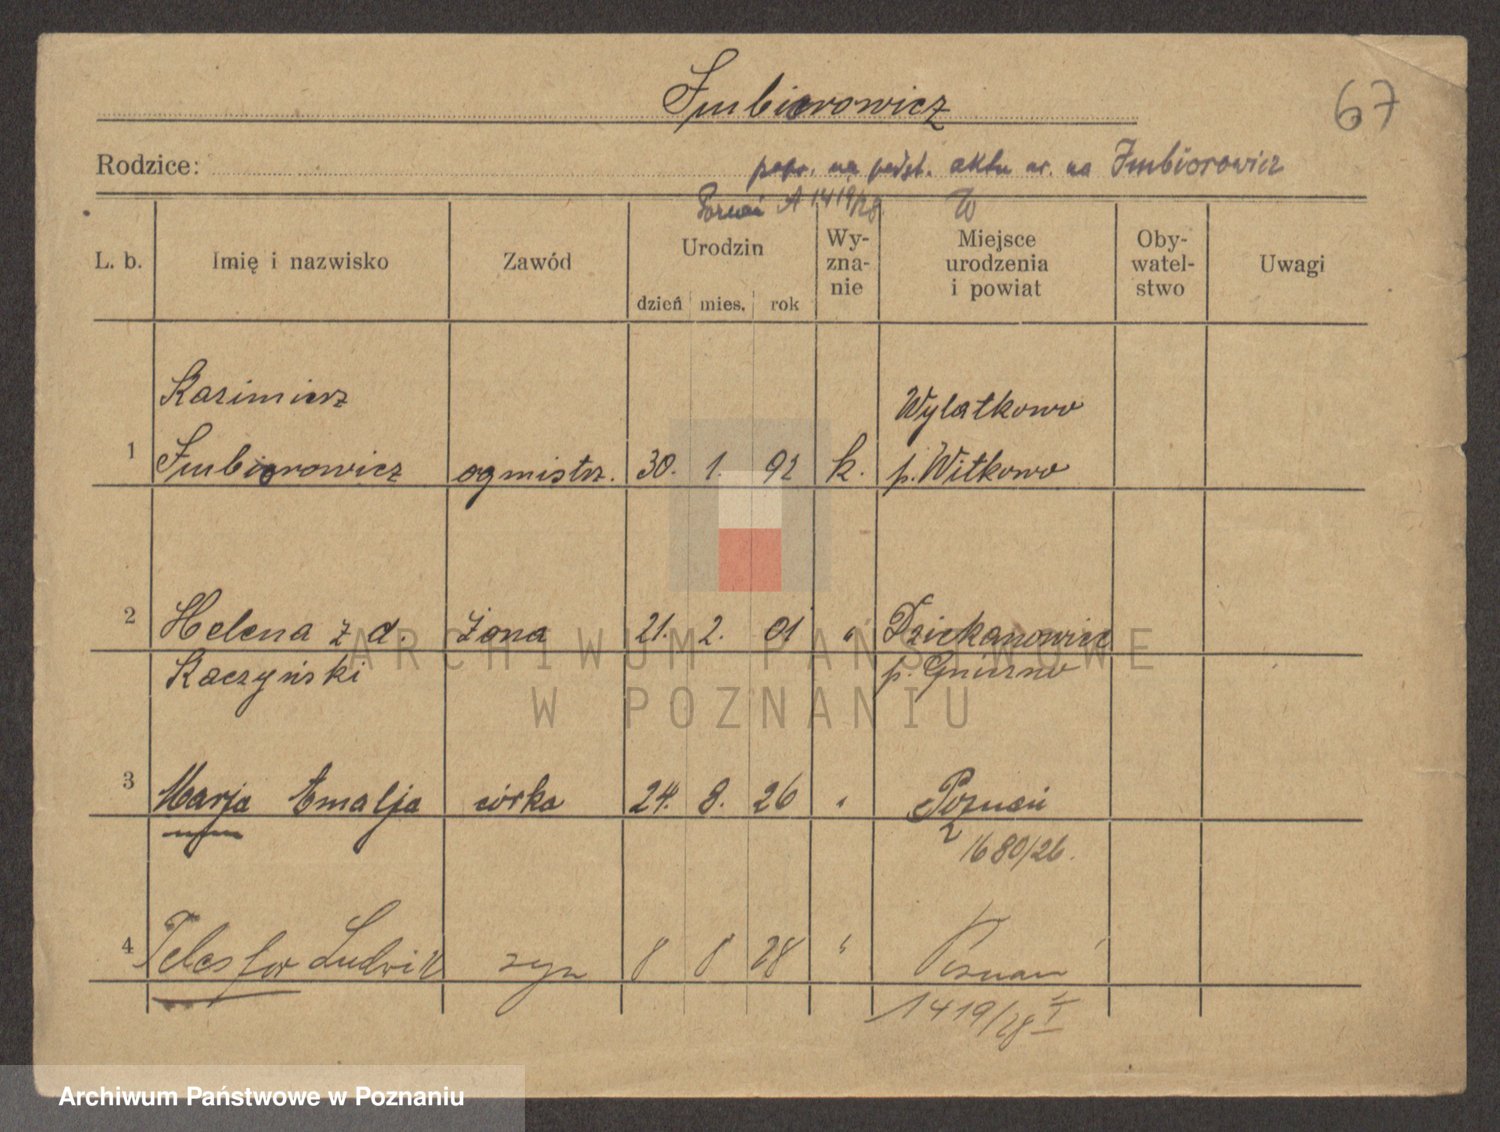 Imbiorowicz
67
Rodzice:
popr. na podst. aktu ur. na Imbiorowicz
Poznań A 1419/28
L. b. Imię i nazwisko Zawód Urodzin dzień mies. rok Wy-zna-nie Miejsce urodzenia i powiat Oby-watel-stwo Uwagi
Kazimierz Wylatkowo
1 Imbiorowicz ogmistrz. 30. 1. 92 k. p. Witkowo
2 Helena z d. żona 21. 2. 01 " Dziekanowice
Kaczyński p. Gniezno
ARCHIWUM PAŃSTWOWE
W POZNANIU
3 Marja Emalja córka 24. 8. 26 " Poznań
1680/26.
4 Telesfor Ludwik syn 8 8 28 " Poznań
1419/28 I
Archiwum Państwowe w Poznaniu